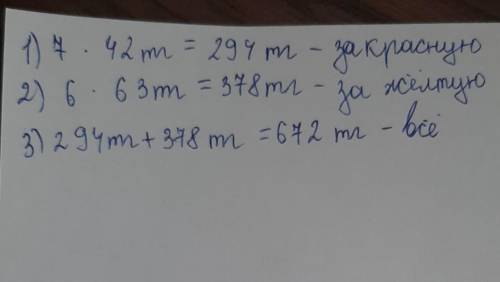 1) 7 · 42 т = 294 т – за красную
2) 6 · 63 т = 378 т – за жёлтую
3) 294 т + 378 т = 672 т – всё